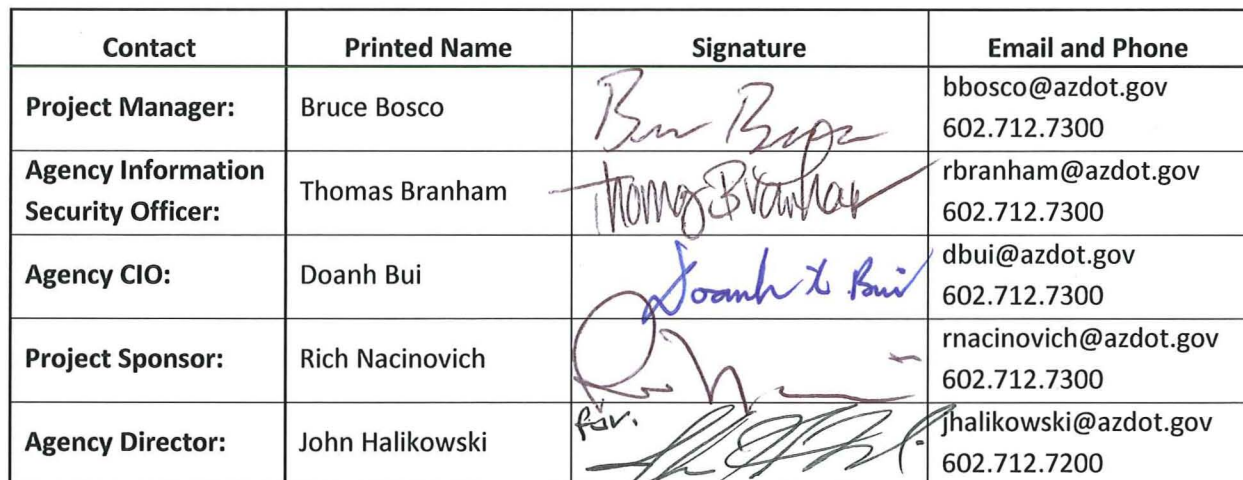 Contact Printed Name Signature Email and Phone
Project Manager: Bruce Bosco bbosco@azdot.gov
602.712.7300
Agency Information
Security Officer: Thomas Branham Thomas Branham rbranham@azdot.gov
602.712.7300
Agency CIO: Doanh Bui Doanh X Bui dbui@azdot.gov
602.712.7300
Project Sponsor: Rich Nacinovich rnacinovich@azdot.gov
602.712.7300
Agency Director: John Halikowski for. jhalikowski@azdot.gov
602.712.7200